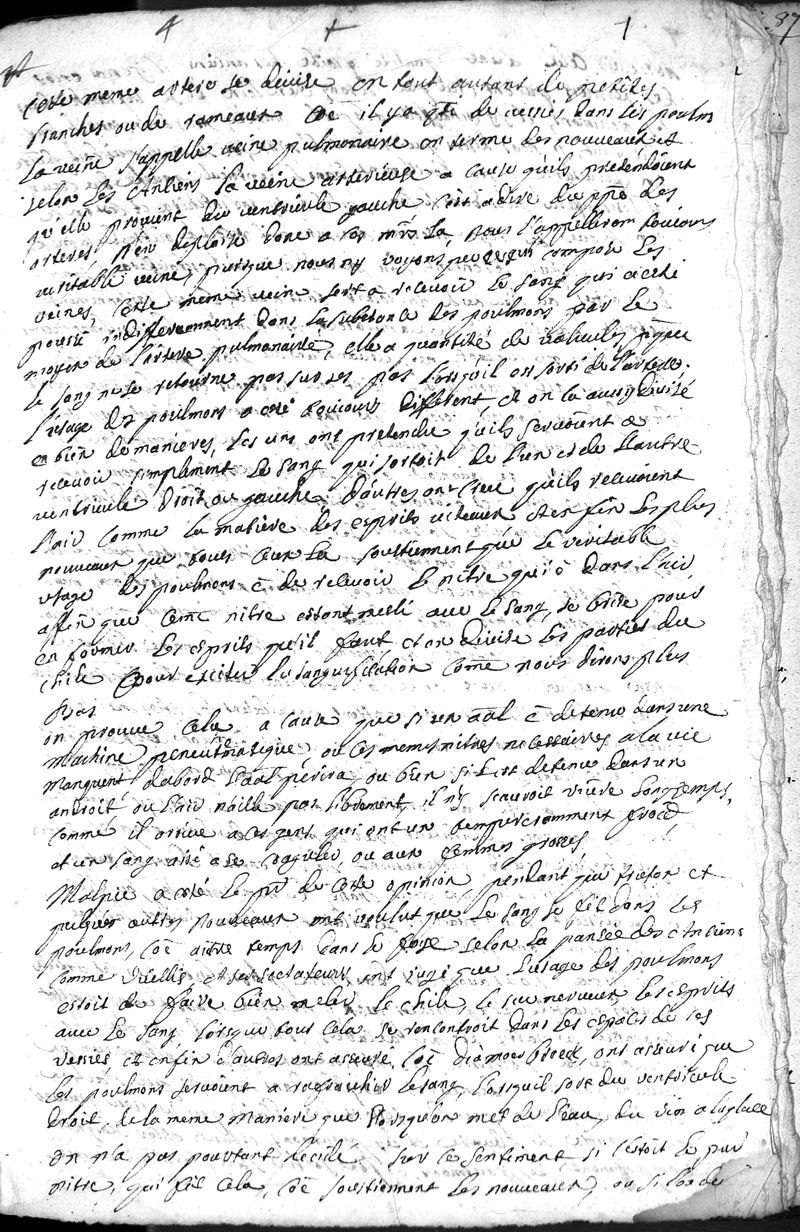 4 + 1 87
Cette meme artere se divise en tout autant de petites
branches ou de rameaux coe il y a qte de vessies dans les poulm
La veine s'appelle veine pulmonaire en terme des nouveaux et
selon les Anciens la veine arterieuse a cause qu'ils pretendoient
qu'elle provient du ventricule gauche c'est a dire du ppe des
arteres, n'en deplaise donc a ces mrs la, nous l'appellerons toujours
veritable veine, puisque nous ny voyons que ce qui compose les
veines, Cette meme vein sert a recevoir le sang qui a eté
poussé indifferemment dans la substance des poulmons par le
moyen de l'artere pulmonaire, elle a quantité de valvules, pque
le sang ne se retourne pas sur ses pas lorsqu'il en sorti de l'artere.
l'usage des poulmons a eté toujours different, et on l'a aussy divisé
en bien de manieres, les uns ont pretendu qu'ils servoient a
recevoir simplement le sang qui sortoit de l'un et de l'autre
ventricule droit ou gauche. d'autres ont creu qu'ils recevoient
l'air comme la matiere des esprits viteaux et enfin les plus
nouveaux que tous ceux la soustiennent que le veritable
usage des poulmons é de recevoir le nitre qui é dans l'air
affin que ceme nitre estant meslé avec le sang, se brise pour
en fournir les esprits qu'il faut, et on divise les parties du
chile pour exciter la sanguification come nous dirons plus
bas
on prouve cela a cause que si un aal é detenu dans une
machine pneumatique, ou ces memes nitres necessaires a la vie
manquent d'abord l'aal perira, ou bien si l est detenu dans un
androit ou l'air n'aille pas librement, il n'y scauroit vivre longtemps,
comme il arrive a ces gens qui ont un temperemment froid,
et un sang aisé a se coaguler, ou aux femmes grosses
Malpie a eté le pr de cette opinion, pendant que
autres nouveaux ont voulut que le sang se fit dans les
poulmons, coe autre temps dans le foye selon la pansée des Anciens
comme Vvillis et ses sectateurs ont jugé que l'usage des poulmons
estoit de faire bien meler le chile, le suc nerveux, les esprits
avec le sang lorsque tout cela se rencontroit dans les espaces de ces
vessies, et enfin d'autres ont asseuré, coe ont asseuré que
les poulmons servoient a rafraichir le sang, lorsquil sort du ventricule
droit, de la meme maniere que lorsqu'on met de l'eau, du vin a la glace
on n'a pas pourtant decidé sur ce sentiment si c'estoit le pur
nitre, qui fit cela, coe soustiennent les nouveaux, ou si l'on de